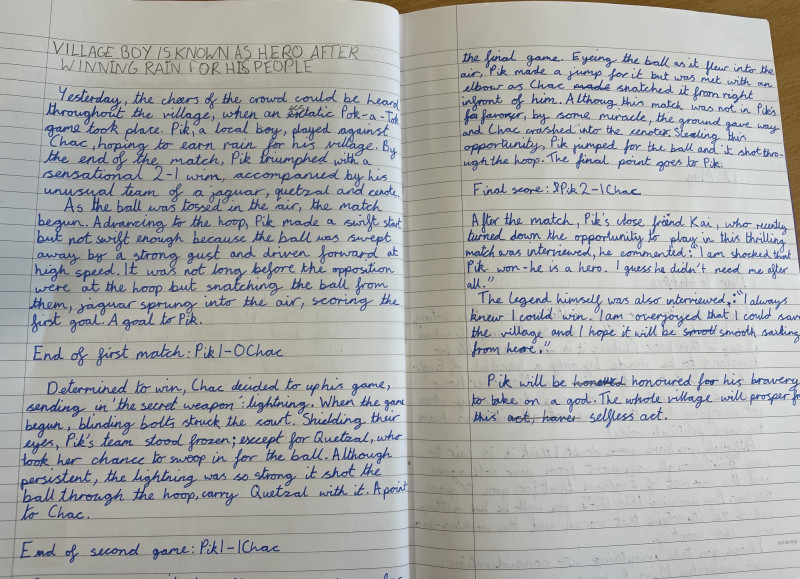 VILLAGE BOY IS KNOWN AS HERO AFTER
WINNING RAIN FOR HIS PEOPLE
Yesterday, the cheers of the crowd could be heard
throughout the village, when an ecstatic Pok-a-Tok
game took place. Pik, a local boy, played against
Chac, hoping to earn rain for his village. By
the end of the match, Pik triumphed with a
sensational 2-1 win, accompanied by his
unusual team of a jaguar, quetzal and cenote.
As the ball was tossed in the air, the match
begun. Advancing to the hoop, Pik made a swift start
but not swift enough because the ball was swept
away by a strong gust and driven forward at
high speed. It was not long before the opposition
were at the hoop but snatching the ball from
them, jaguar sprung into the air, scoring the
first goal. A goal to Pik.
End of first match: Pik 1-0 Chac
Determined to win, Chac decided to up his game,
sending in 'the secret weapon': lightning. When the game
begun, blinding bolts struck the court. Shielding their
eyes, Pik's team stood frozen; except for Quetzal, who
took her chance to swoop in for the ball. Although
persistent, the lightning was so strong it shot the
ball through the hoop, carry Quetzal with it. A point
to Chac.
End of second game: Pik 1-1 Chac
the final game. Eyeing the ball as it flew into the
air, Pik made a jump for it but was met with an
elbow as Chac made snatched it from right
infront of him. Althoug this match was not in Pik's
favour, by some miracle, the ground gave way
and Chac crashed into the cenote. Stealing this
opportunity, Pik jumped for the ball and it shot thro-
ugh the hoop. The final point goes to Pik.
Final score: Pik 2-1 Chac
After the match, Pik's close friend Kai, who recently
turned down the opportunity to play in this thrilling
match was interviewed, he commented: "I am shocked that
Pik won - he is a hero. I guess he didn't need me after
all."
The legend himself was also interviewed,: "I always
knew I could win. I am overjoyed that I could save
the village and I hope it will be smoot smooth sailing
from here."
Pik will be honoured for his bravery
to take on a god. The whole village will prosper
this act, selfless act.